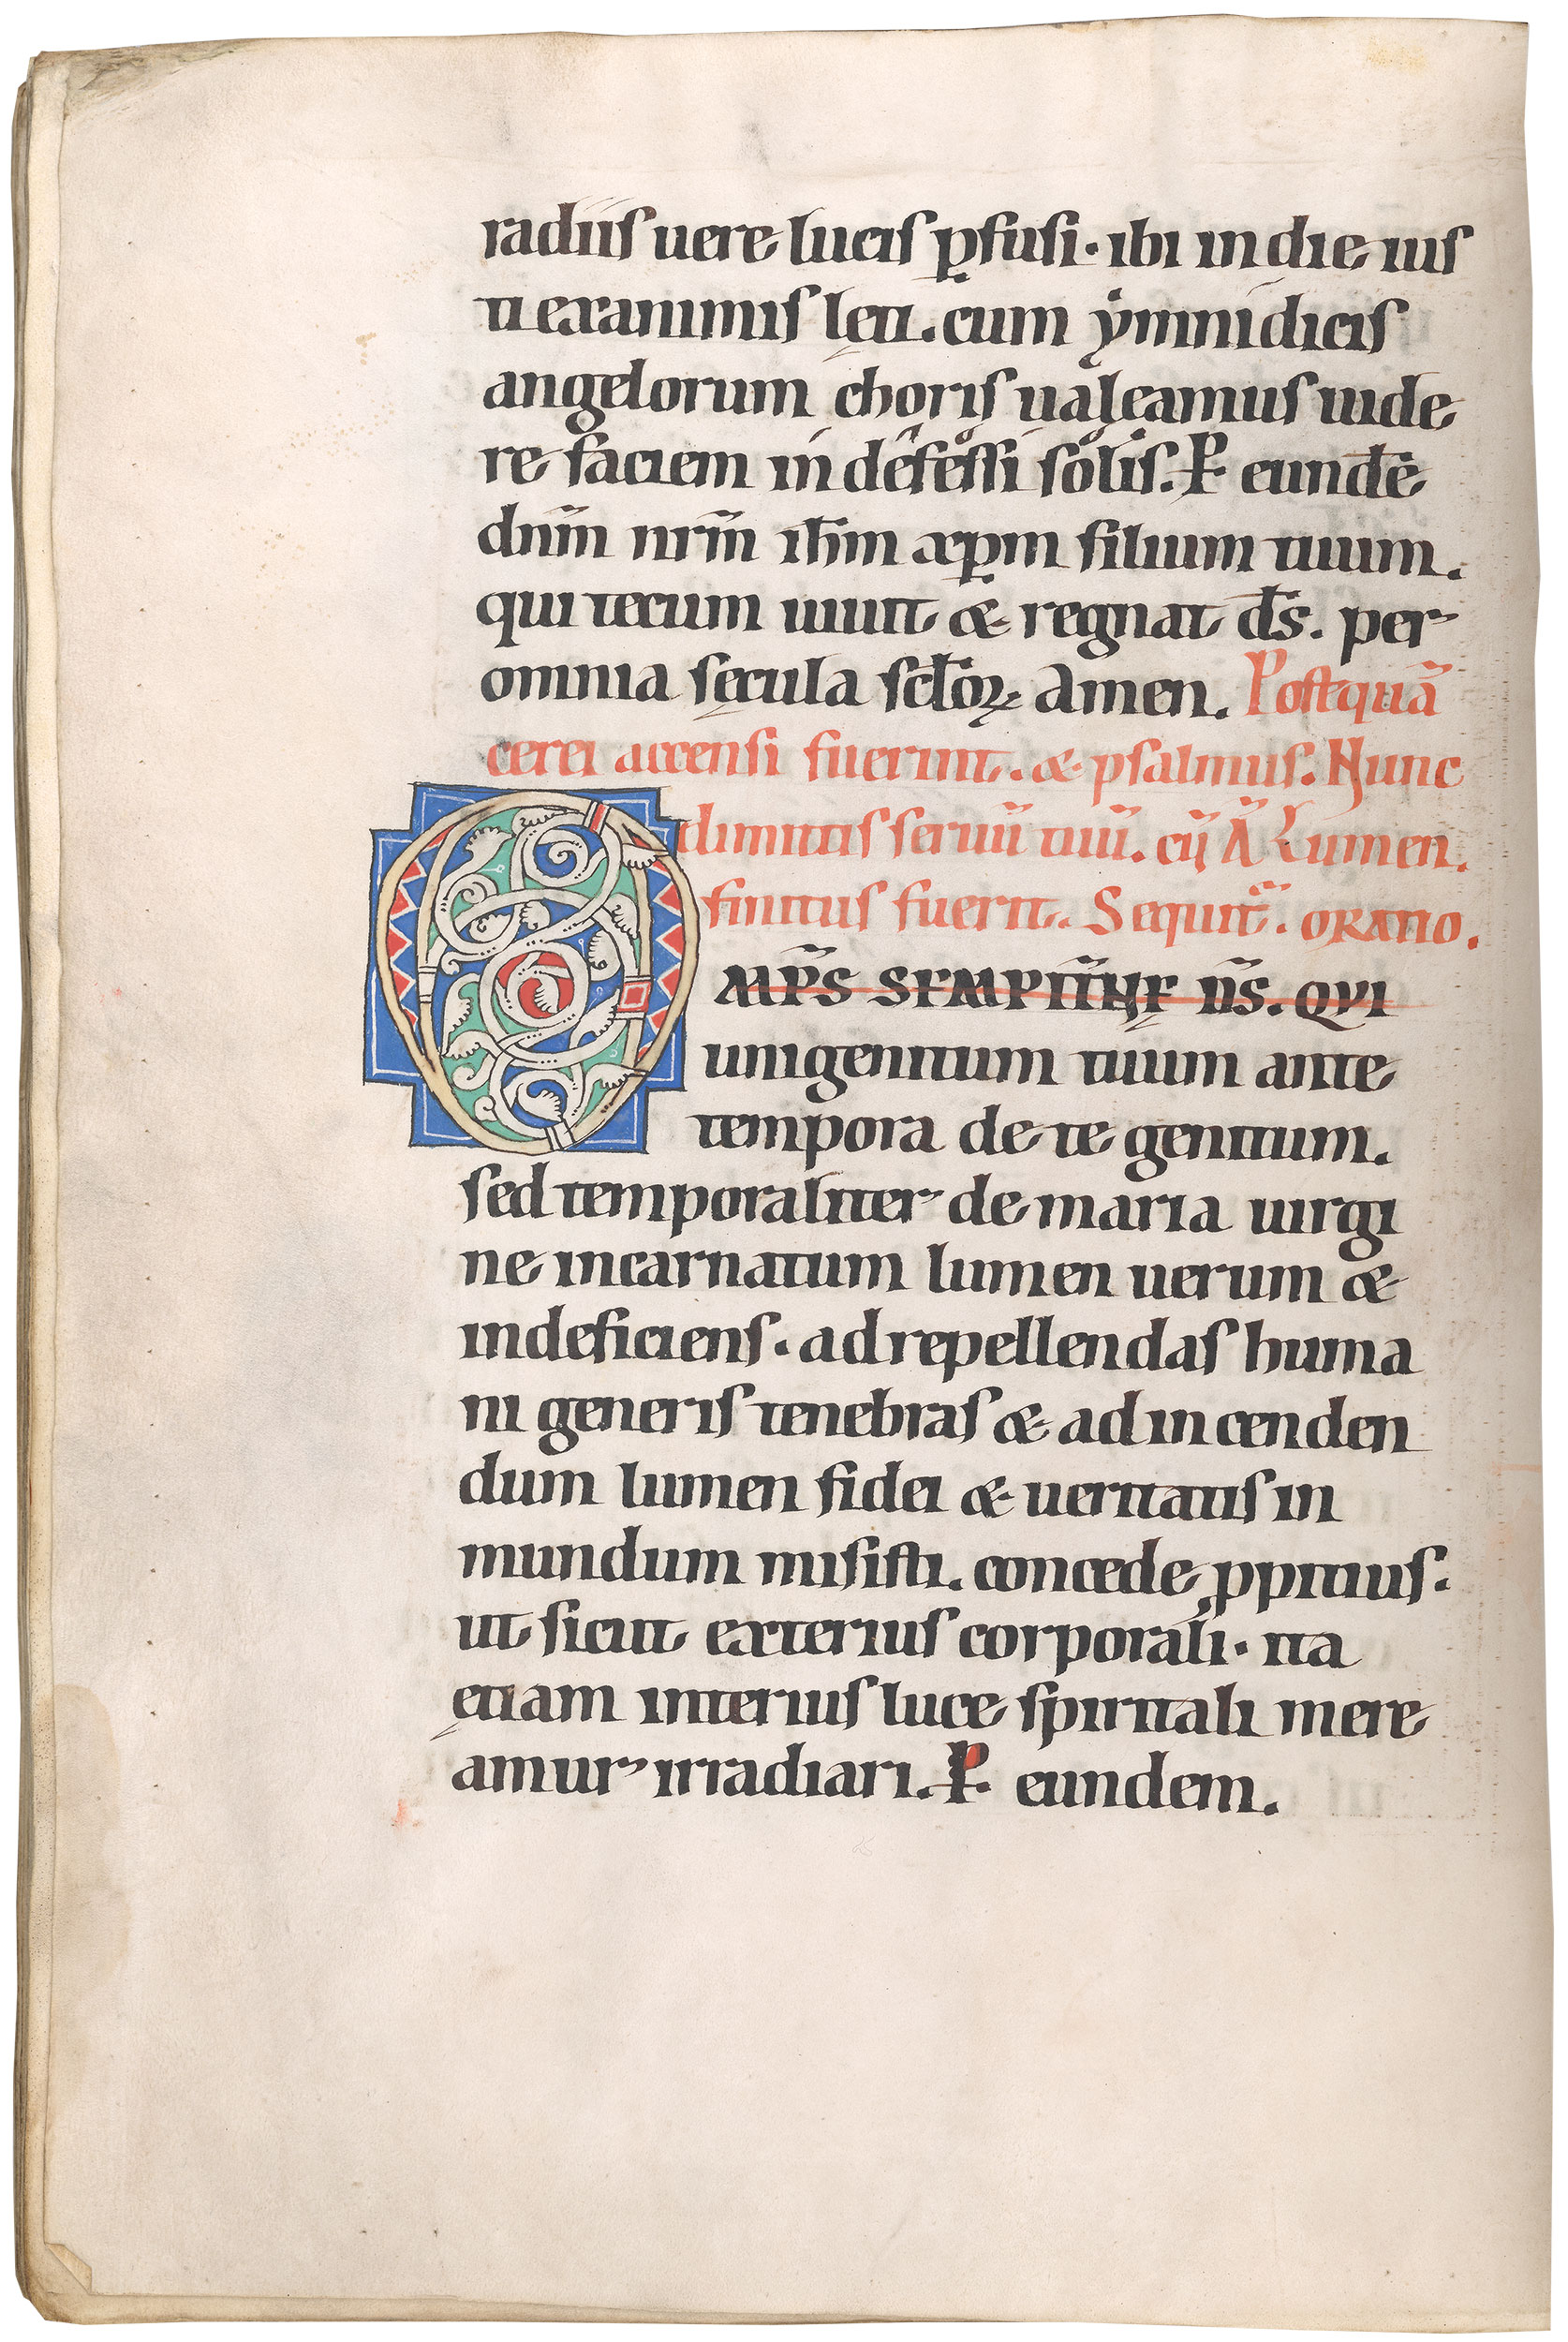 radiis uere lucis ꝑfusi. ibi in die ius
ti exanimis lęti. cum ymnidicis
angelorum choris ualeamus uide
re faciem indefessi solis. P̱ eundē
dnm̄ nrm̄ ihm̄ xp̄m filium tuum.
qui tecum uiuit & regnat ds̄. per
omnia sęcula sc̄loꝝ amen. Postquā
cerei accensi fuerint. & psalmus. Nunc
dimittis seruū tuū. cū A̅ Lumen.
finitus fuerit. Sequit̄. ORATIO.
OMPS̄ SEMPITŇE DS̄. QVI
unigenitum tuum ante
tempora de te genitum.
sed temporaliter de maria uirgi
ne incarnatum lumen uerum &
indeficiens. ad repellendas huma
ni generis tenebras & ad incenden
dum lumen fidei & ueritatis in
mundum misisti. concede ꝓpitius.
ut sicut exterius corporali. ita
ętiam interius luce spiritali mere
amur irradiari. P̱ eundem.